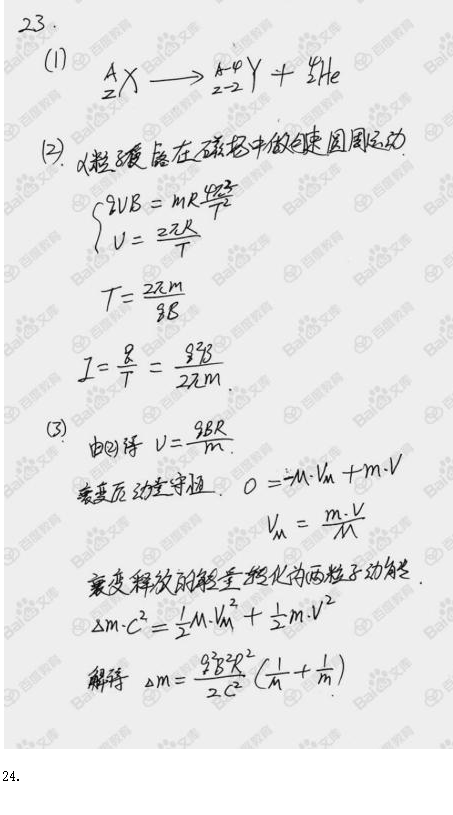 23.
(1)
ᴬ_ZX ⟶ ᴬ⁻⁴_Z₋₂Y + ⁴₂He
(2). α粒子在磁场中做匀速圆周运动
qvB = mR 4π²/T²
v = 2πR/T
T = 2πm/qB
I = q/T = q²B/2πm.
(3)
由(2)得 v = qBR/m.
衰变后动量守恒. 0 = -M·V_M + m·v
V_M = m·v/M
衰变释放的能量转化为两粒子动能.
Δm·c² = 1/2 M·V_M² + 1/2 m·v²
解得 Δm = q²B²R²/2c² (1/M + 1/m)
24.